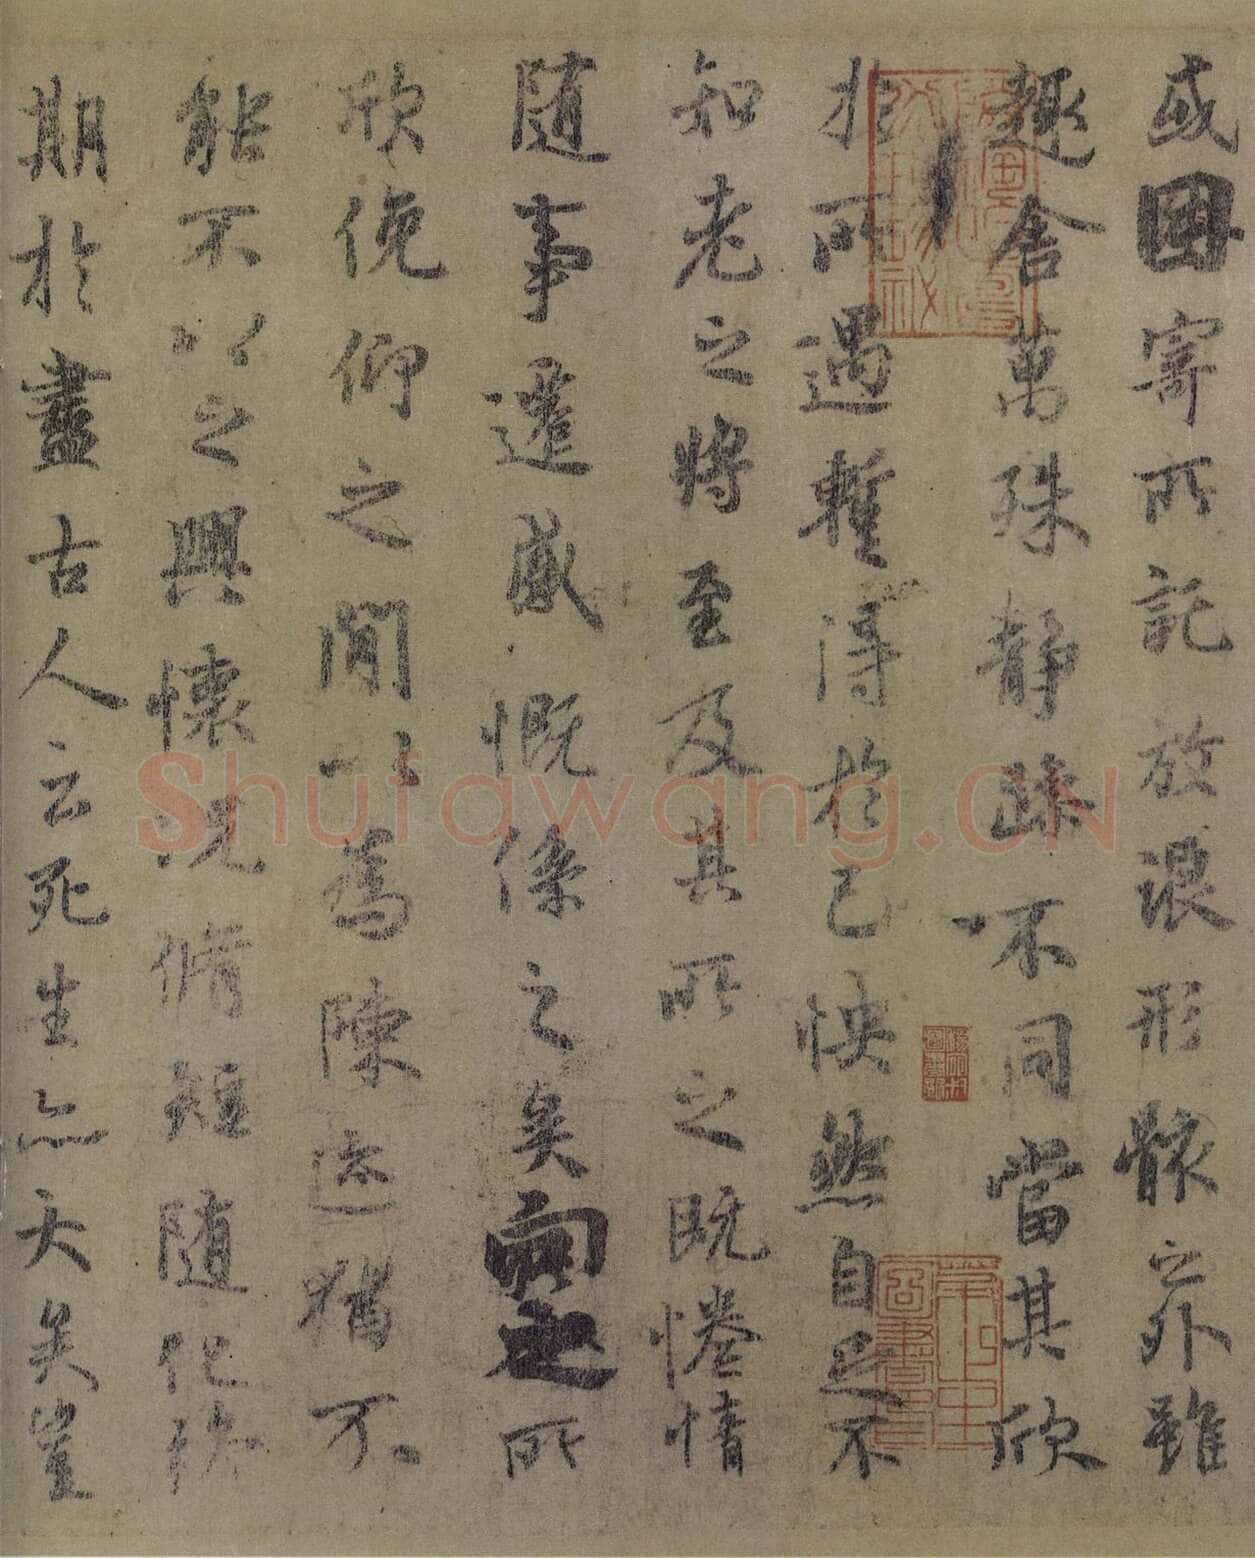 或因寄所託放浪形骸之外雖
趣舍萬殊静躁不同當其欣
於所遇蹔得於己怏然自足不
知老之將至及其所之既惓情
随事遷感慨係之矣向之所
欣俛仰之閒以為陳迹猶不
能不以之興懷況脩短随化終
期於盡古人云死生亦大矣豈
Shufawang.CN